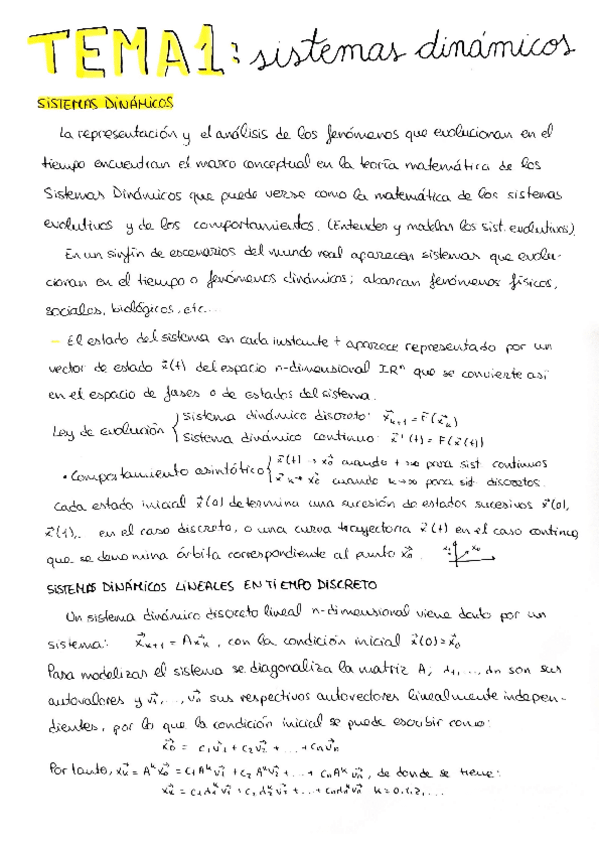 TEMA1: sistemas dinámicos
SISTEMAS DINÁMICOS
La representación y el análisis de los fenómenos que evolucionan en el
tiempo encuentran el marco conceptual en la teoría matemática de los
Sistemas Dinámicos que puede verse como la matemática de los sistemas
evolutivos y de los comportamientos. (Entender y modelar los sist. evolutivos).
En un sinfín de escenarios del mundo real aparecen sistemas que evolu-
cionan en el tiempo o fenómenos dinámicos; abarcan fenómenos físicos,
sociales, biológicos, etc...
- El estado del sistema en cada instante t aparece representado por un
vector de estado x⃗(t) del espacio n-dimensional IRⁿ que se convierte así
en el espacio de fases o de estados del sistema.
Ley de evolución { sistema dinámico discreto: x⃗ₖ₊₁ = F(x⃗ₖ)
sistema dinámico continuo: x⃗'(t) = F(x⃗(t))
• Comportamiento asintótico { x⃗(t) → x⃗₀ cuando t→∞ para sist. continuos
x⃗ₖ → x⃗₀ cuando k→∞ para sist. discretos.
Cada estado inicial x⃗(0) determina una sucesión de estados sucesivos x⃗(0),
x⃗(1),.. en el caso discreto, o una curva trayectoria x⃗(t) en el caso continuo,
que se denomina órbita correspondiente al punto x⃗₀.
SISTEMAS DINÁMICOS LINEALES EN TIEMPO DISCRETO
Un sistema dinámico discreto lineal n-dimensional viene dado por un
sistema: x⃗ₖ₊₁ = Ax⃗ₖ, con la condición inicial x⃗(0)=x⃗₀
Para modelizar el sistema se diagonaliza la matriz A; λ₁,..., λn son sus
autovalores y v⃗₁,..., v⃗n sus respectivos autovectores linealmente indepen-
dientes, por lo que la condición inicial se puede escribir como:
x⃗₀ = c₁v⃗₁ + c₂v⃗₂ + ... + cnv⃗n
Por tanto, x⃗ₖ = Aᵏx⃗₀ = c₁Aᵏv⃗₁ + c₂Aᵏv⃗₂ + ... + cnAᵏv⃗n, de donde se tiene:
x⃗ₖ = c₁λ₁ᵏv⃗₁ + c₂λ₂ᵏv⃗₂ + ... + cnλnᵏv⃗n k=0,1,2,...